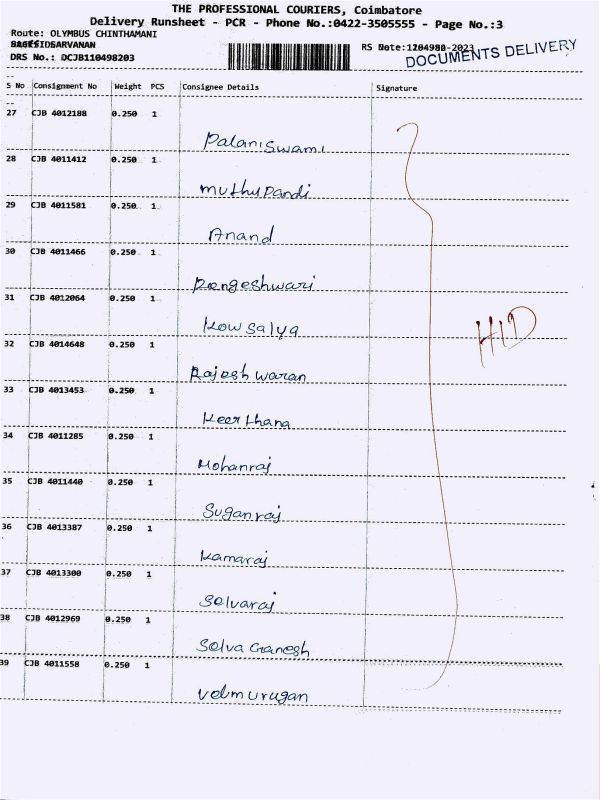 THE PROFESSIONAL COURIERS, Coimbatore
Delivery Runsheet - PCR - Phone No.:0422-3505555 - Page No.:3
Route: OLYMBUS CHINTHAMANI
SARVANAN
DRS No.: DCJB110498203
DOCUMENTS DELIVERY
S No Consignment No Weight PCS Consignee Details Signature
27 CJB 4012188 0.250 1
Palaniswami
28 CJB 4011412 0.250 1
Muthupandi
29 CJB 4011581 0.250 1
Anand
30 CJB 4011466 0.250 1
Rangeshwari
31 CJB 4012064 0.250 1
Kowsalya
HID
32 CJB 4014648 0.250 1
Rajeshwaran
33 CJB 4013453 0.250 1
Keerthana
34 CJB 4011285 0.250 1
Mohanraj
35 CJB 4011440 0.250 1
Suganraj
36 CJB 4013387 0.250 1
Kamaraj
37 CJB 4013300 0.250 1
Selvaraj
38 CJB 4012969 0.250 1
Selva Ganesh
39 CJB 4011558 0.250 1
Velmurugan